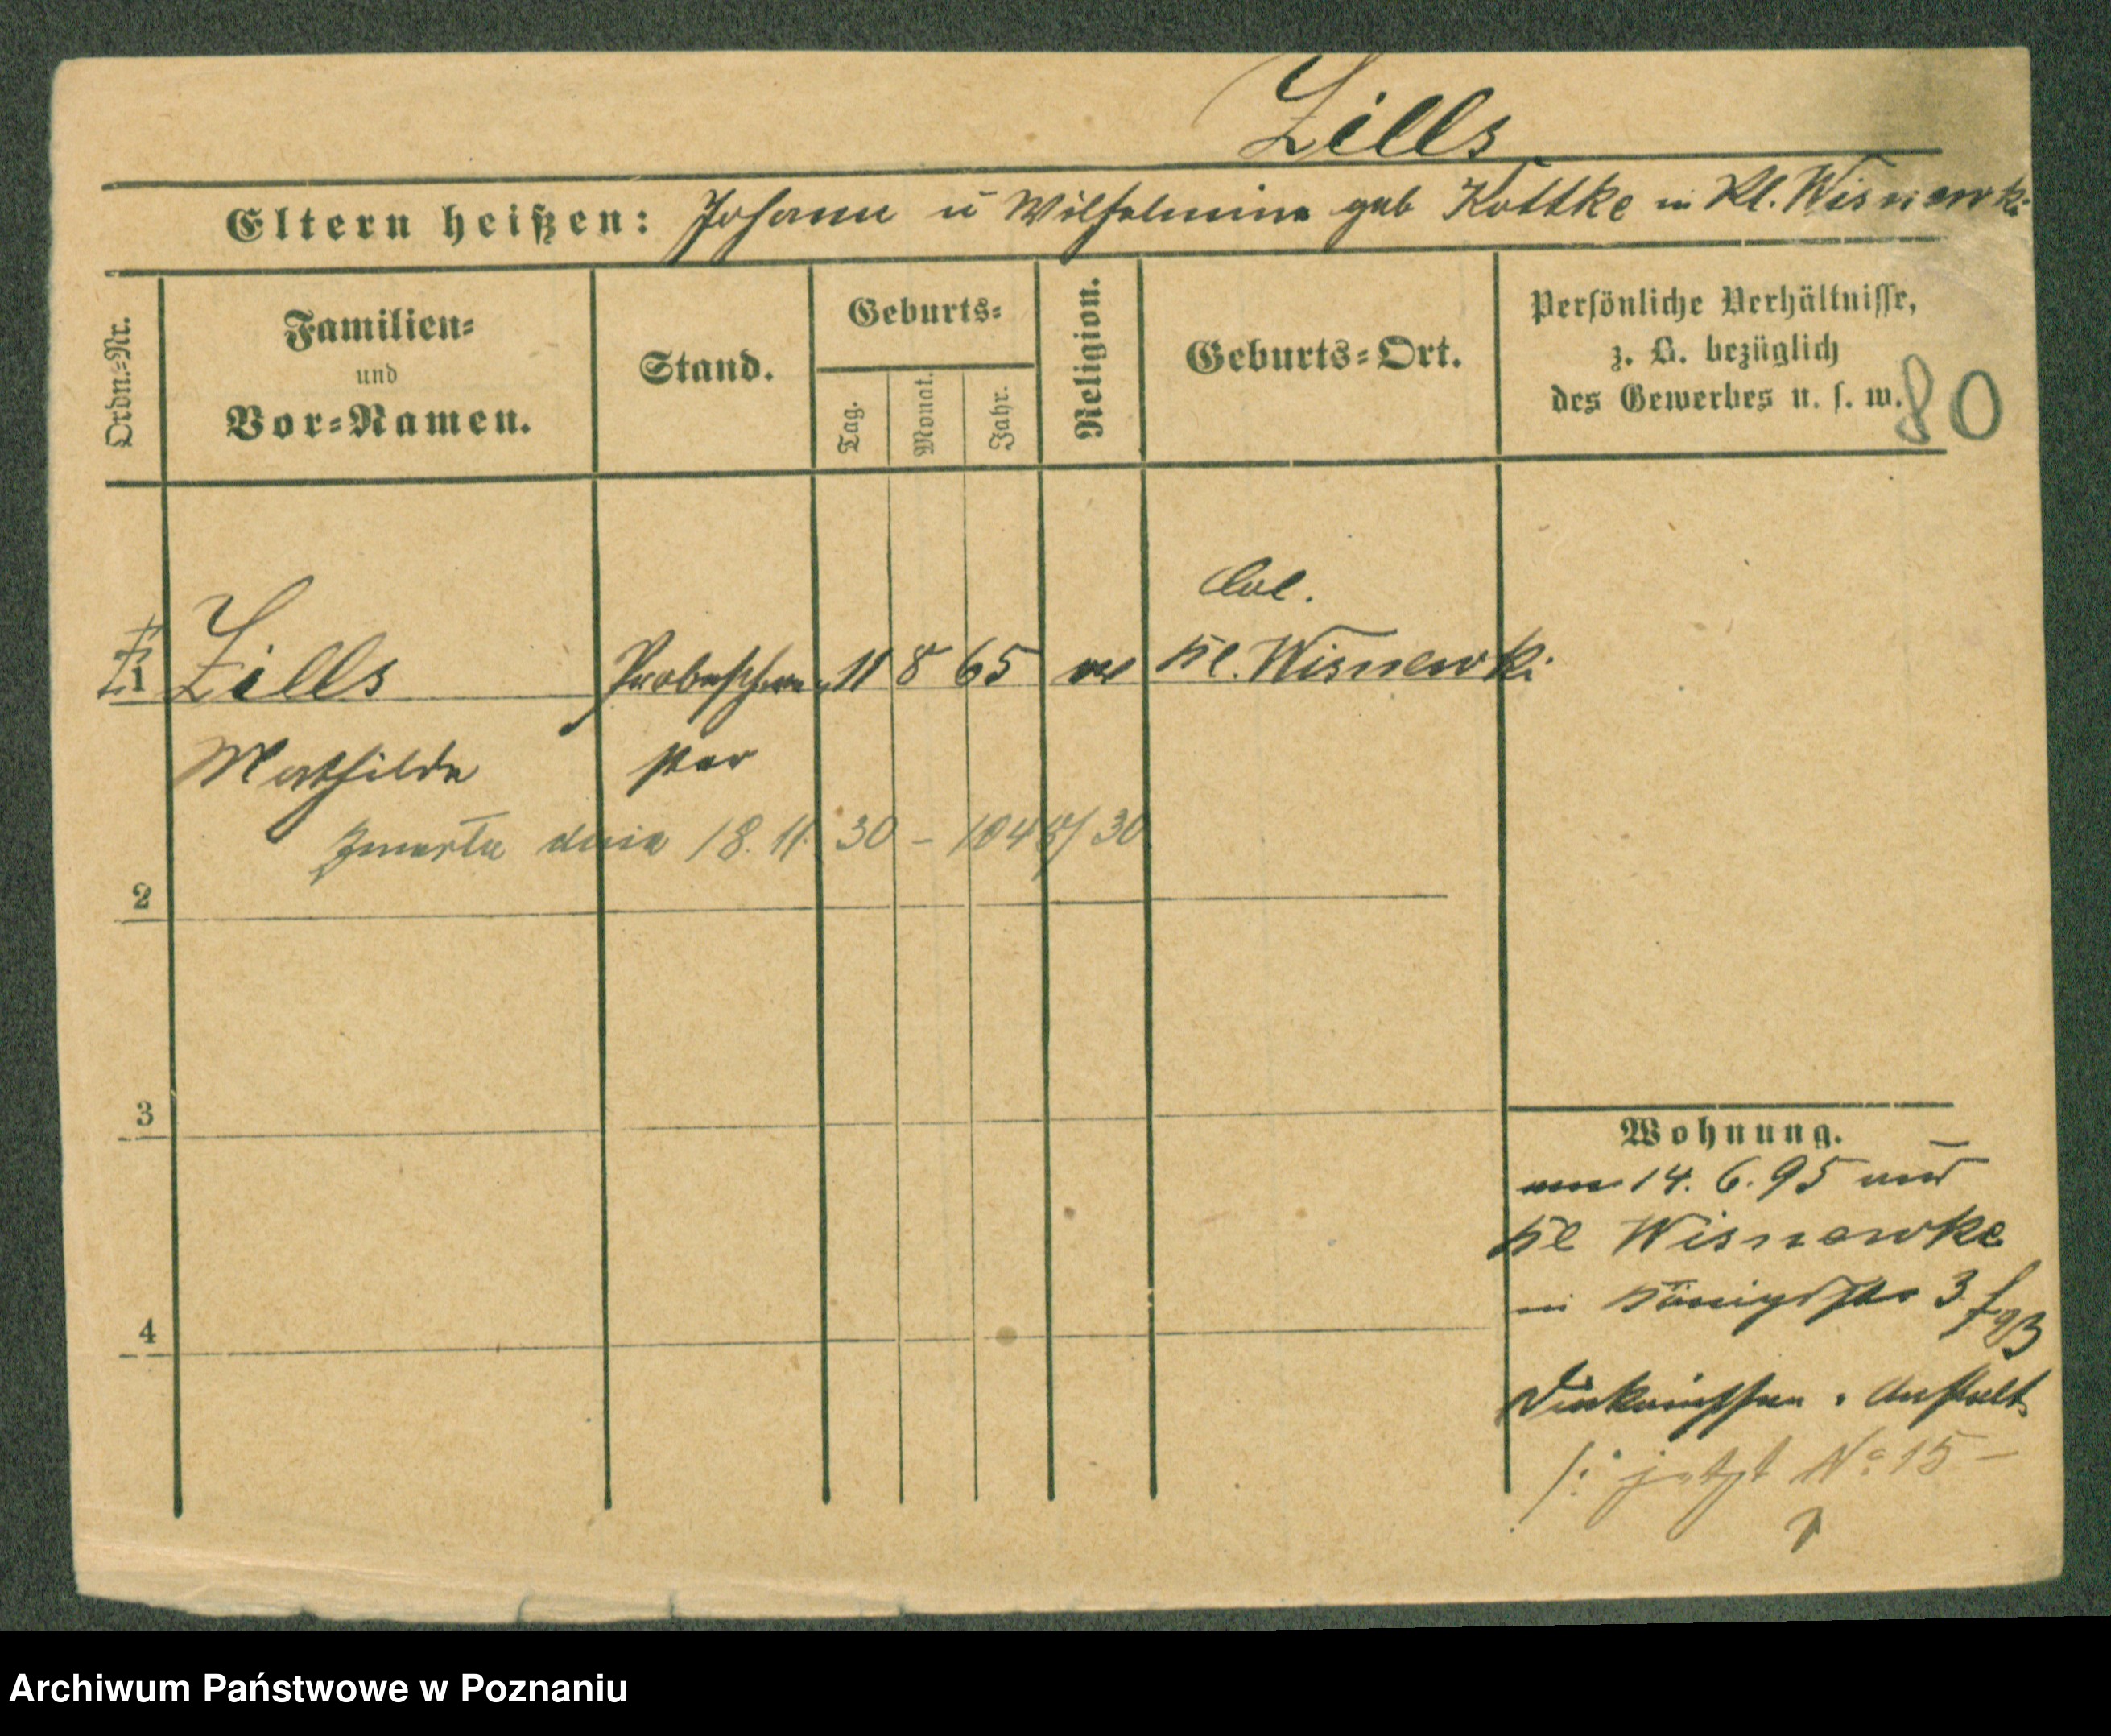 Zills
Eltern heißen: Johann u Wilhelmine geb Kottke in Kl. Wisnewki
Ordn.-Nr.
Familien-
und
Vor-Namen.
Stand.
Geburts-
Tag.
Monat.
Jahr.
Religion.
Geburts-Ort.
Persönliche Verhältnisse,
z. B. bezüglich
des Gewerbes u. s. w.
80
Col.
1 Zills Probeschwe- 11 8 65 ev Kl. Wisnewki
Mathilde ster
Zmarła dnia 18. 11. 30 – /30
2
3
4
Wohnung.
am 14. 6. 95 aus
Kl Wisnewke
in Königstr 3
Diakonissen - Anstalt
/: jetzt No 15 –